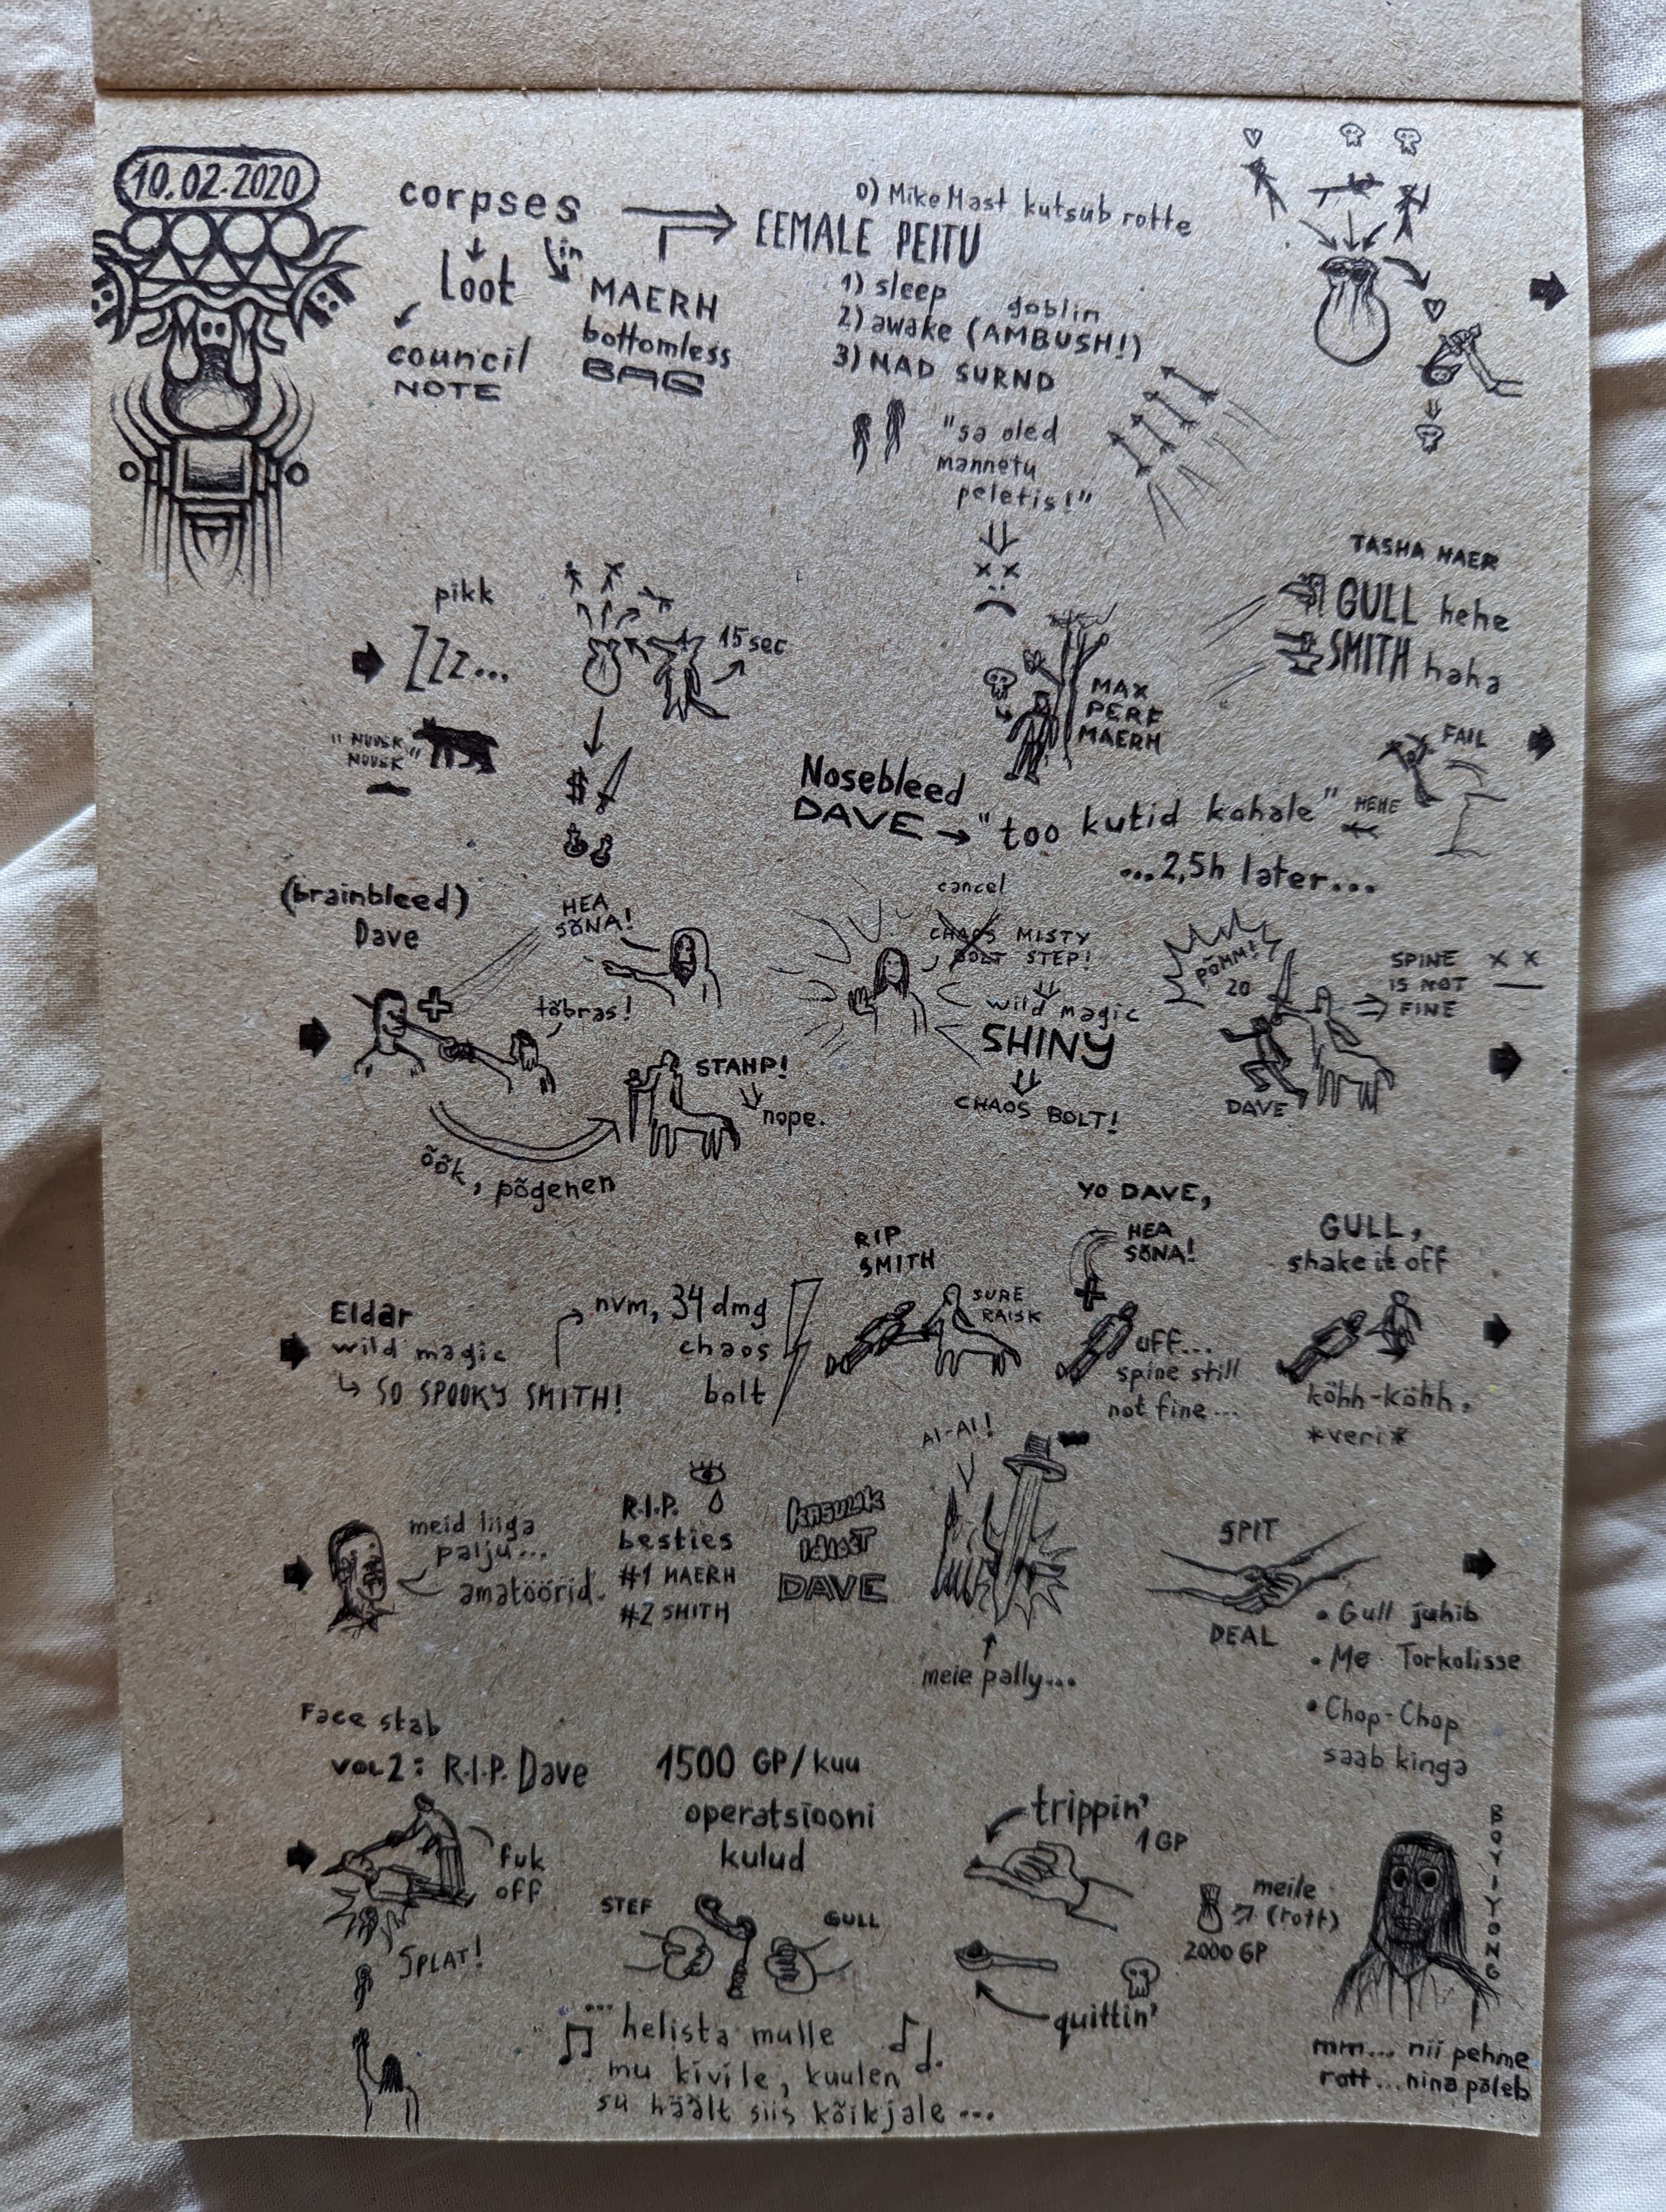 10.02.2020
corpses
loot
in
council
NOTE
MAERH
bottomless
BAG
EEMALE PEITU
0) Mike Mast kutsub rotte
1) sleep
goblin
2) awake (AMBUSH!)
3) NAD SURND
"sa oled
mannetu
peletis!"
x x
pikk
ZZz...
"NUUSK
NUUSK"
15 sec
$
TASHA HAER
GULL hehe
SMITH haha
MAX
PERF
MAERH
FAIL
HEHE
Nosebleed
DAVE → "too kutid kohale"
...2,5h later...
(brainbleed)
Dave
HEA
SÕNA!
tõbras!
STAHP!
nope.
öök, põgenen
cancel
CHAOS MISTY
BOLT STEP!
wild magic
SHINY
CHAOS BOLT!
PÕMM!
20
DAVE
SPINE
IS NOT
FINE
x x
Eldar
wild magic
↳ SO SPOOKY SMITH!
nvm, 34 dmg
chaos
bolt
RIP
SMITH
SURE
RAISK
YO DAVE,
HEA
SÕNA!
uff...
spine still
not fine...
GULL,
shake it off
köhh-köhh,
*veri*
meid liiga
palju...
amatöörid.
R.I.P.
besties
#1 MAERH
#2 SMITH
KASULIK
IDIOOT
DAVE
AI-AI!
meie pally...
SPIT
DEAL
• Gull juhib
• Me Torkolisse
• Chop-Chop
saab kinga
Face stab
VOL 2: R.I.P. Dave
fuk
off
SPLAT!
1500 GP/kuu
operatsiooni
kulud
STEF
GULL
... helista mulle
mu kivile, kuulen
su häält siis kõikjale ...
trippin'
1 GP
quittin'
meile
(rott)
2000 GP
BOYIYONG
mm... nii pehme
rott... nina põleb